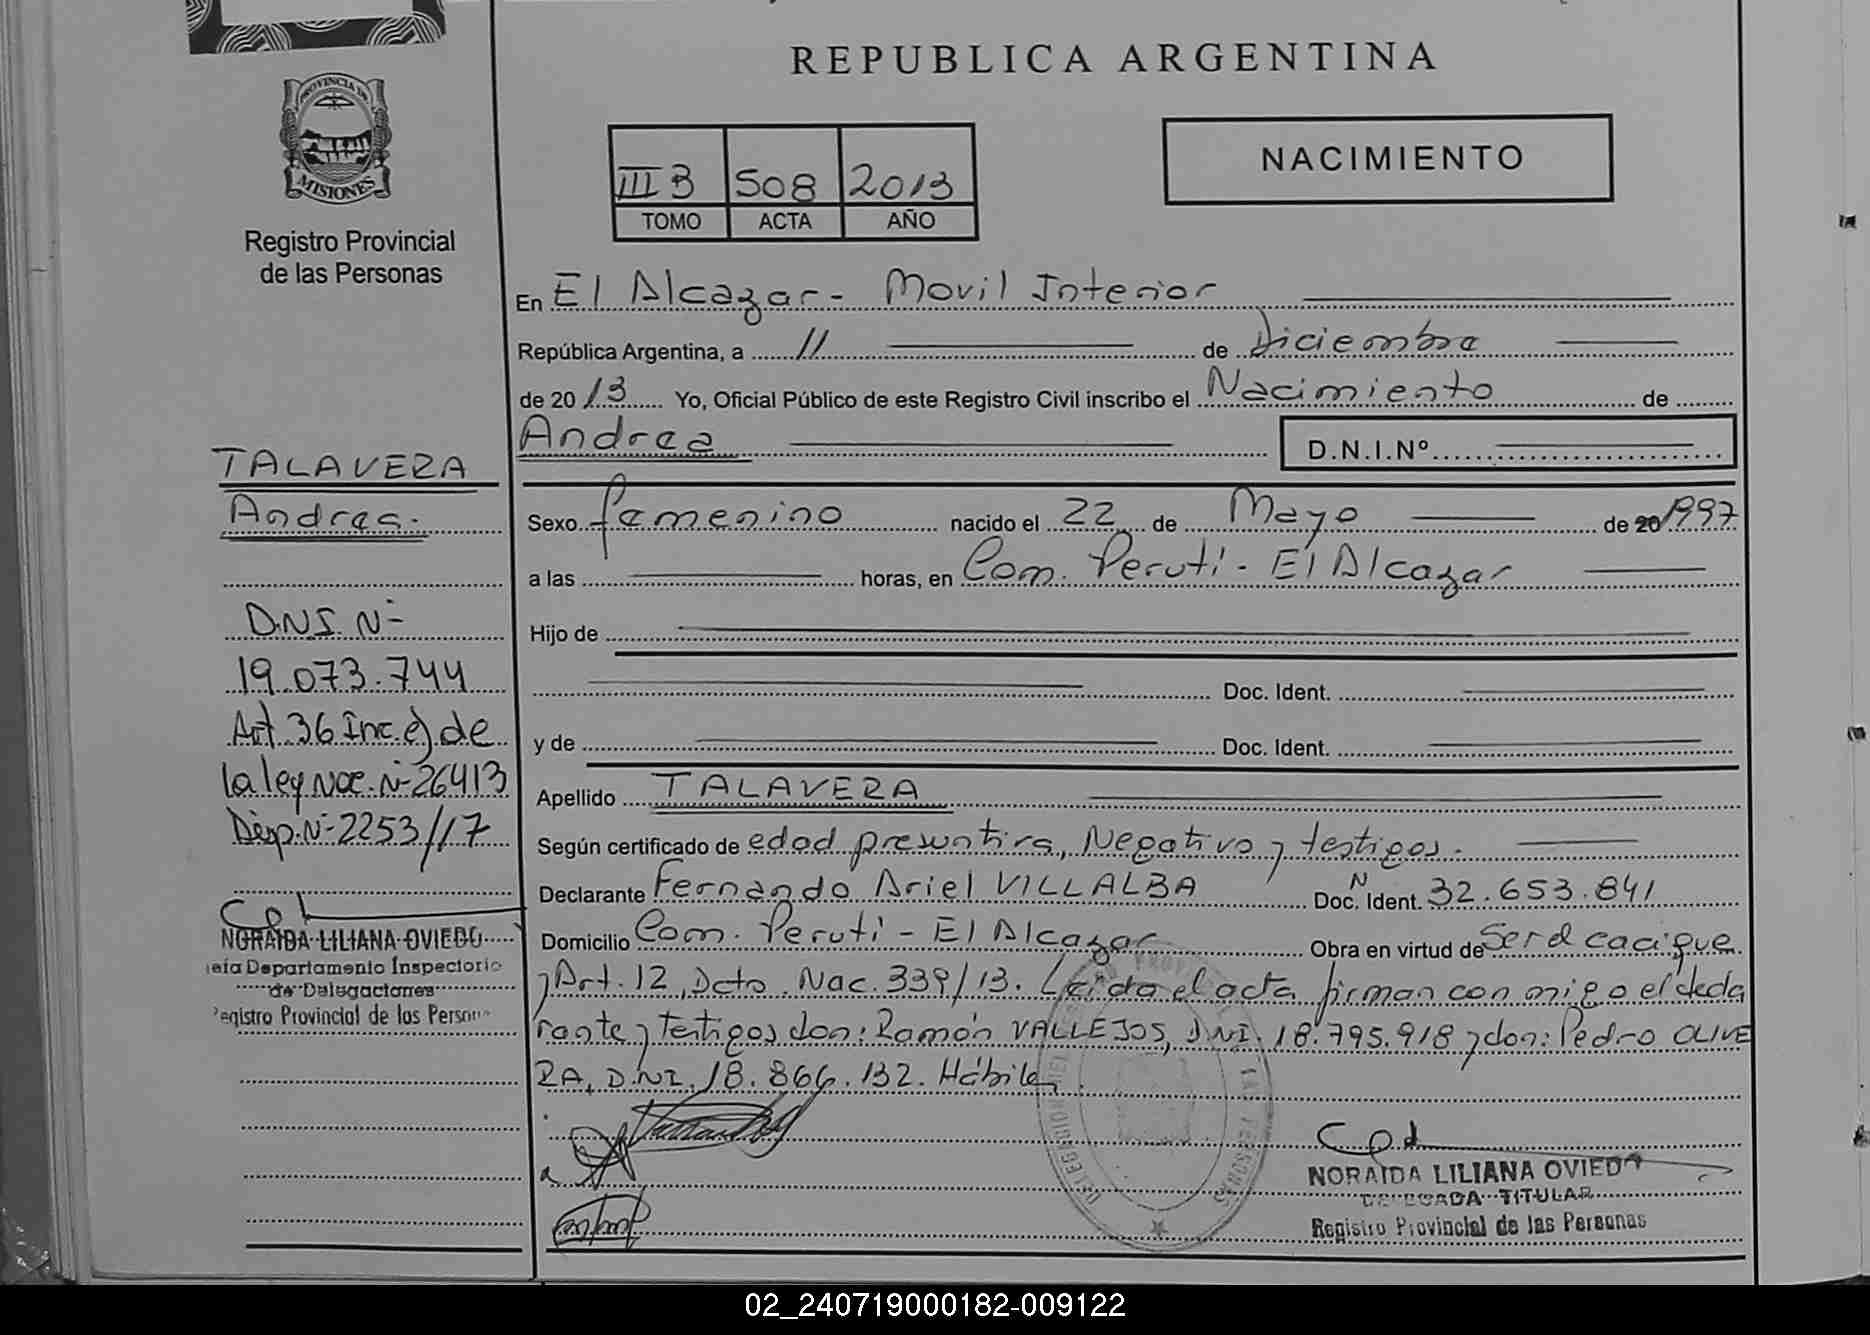 REPUBLICA ARGENTINA
PROVINCIA DE
MISIONES
Registro Provincial
de las Personas
III B 508 2013
TOMO ACTA AÑO
NACIMIENTO
En El Alcazar - Movil Interior
República Argentina, a 11 de Diciembre
de 2013 Yo, Oficial Público de este Registro Civil inscribo el Nacimiento de
Andrea D.N.I.Nº
Sexo femenino nacido el 22 de Mayo de 20 1997
a las horas, en Com. Peruti - El Alcazar
Hijo de
Doc. Ident.
y de Doc. Ident.
Apellido TALAVERA
Según certificado de edad presuntiva, Negativo y testigos.
Declarante Fernando Ariel VILLALBA Doc. N Ident. 32.653.841
Domicilio Com. Peruti - El Alcazar Obra en virtud de Ser el cacique
y Art. 12, Dcto. Nac. 339/13. Leida el acta firman con migo el decla
rante y testigos don: Ramón VALLEJOS, D.N.I. 18.795.918 y don: Pedro OLIVE
RA, D.N.I. 18.866.132. Hábiles.
NORAIDA LILIANA OVIEDO
DELEGADA TITULAR
Registro Provincial de las Personas
TALAVERA
Andrea.
D.N.I. Nº
19.073.744
Art. 36 Inc. e) de
la ley Nac. Nº 26413
Disp. Nº 2253/17
NORAIDA LILIANA OVIEDO
Jefa Departamento Inspectorio
de Delegaciones
Registro Provincial de las Personas
02_240719000182-009122